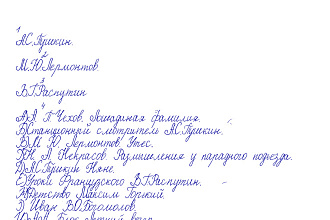 1
А.С. Пушкин.
2
М.Ю. Лермонтов.
3
В.Г. Распутин
4
А) А. П. Чехов. Лошадиная фамилия.
Б) Станционный смотритель А.С. Пушкин.
В) М. Ю. Лермонтов. Утес.
Г) Н. А. Некрасов. Размышления у парадного подъезда.
Д) А.С. Пушкин Няне.
Е) Уроки Французского В.Г. Распутин.
Ж) Детство Максим Горький.
З) Иван В.О. Богомолов.
И) А.А. Блок Летний вечер.